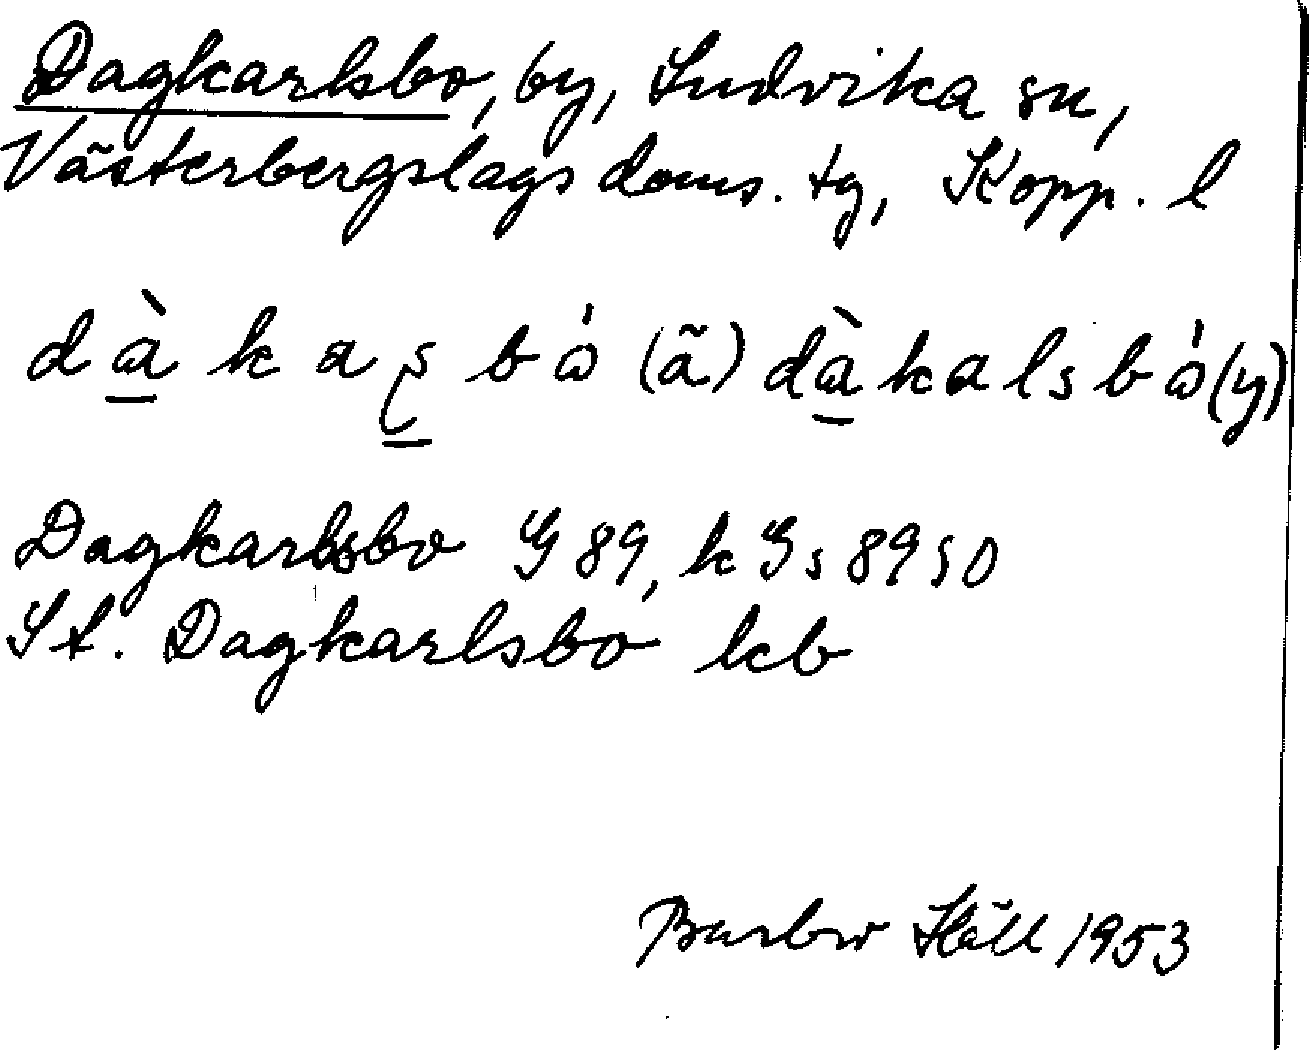 Dagkarlsbo, by, Ludvika sn,
Västerbergslags doms. tg, Kopp. l
dà̱kaʂ̱bó̀ (ä) dà̱kalsbó̀ (y)
Dagkarlsbo G 89, k Gs 8950
St. Dagkarlsbo kb
1953